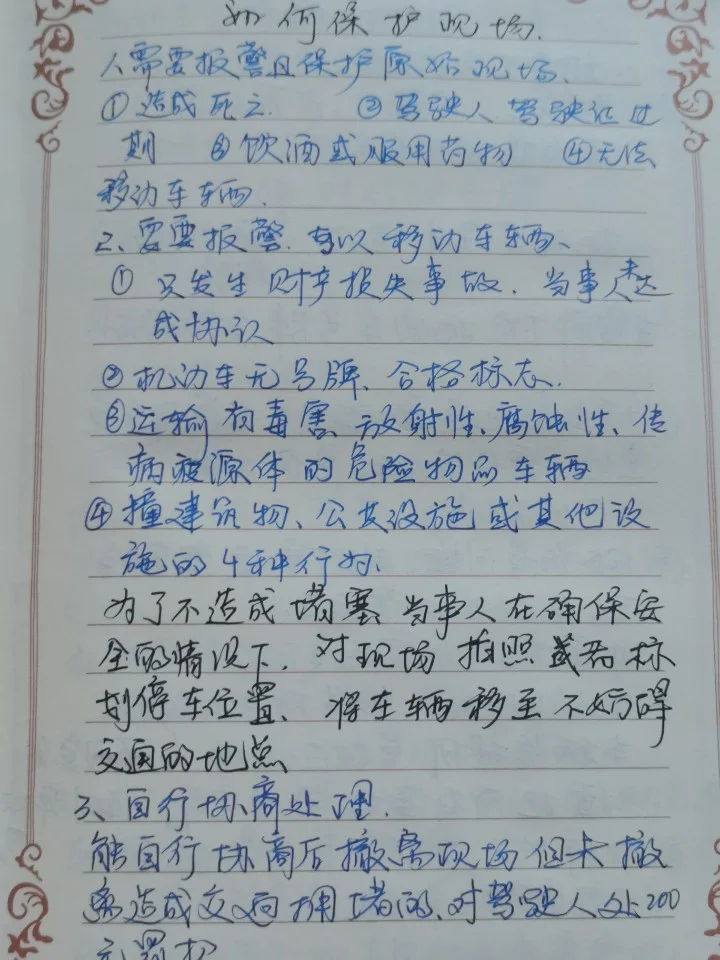 如何保护现场.
人需要报警且保护原始现场、
①造成死亡. ②驾驶人驾驶证过
期 ③饮酒或服用药物 ④无法
移动车辆.
2、需要报警.可以移动车辆、
①只发生财产损失事故.当事人未达
成协议
②机动车无号牌、合格标志.
③运输有毒害、放射性、腐蚀性、传
病疫源体的危险物品车辆
④撞建筑物、公共设施或其他设
施的4种行为、
为了不造成堵塞当事人在确保安
全的情况下.对现场拍照或者标
划停车位置、将车辆移至不妨碍
交通的地点
3、自行协商处理.
能自行协商后撤离现场但未撤
离造成交通拥堵的、对驾驶人处200
元罚